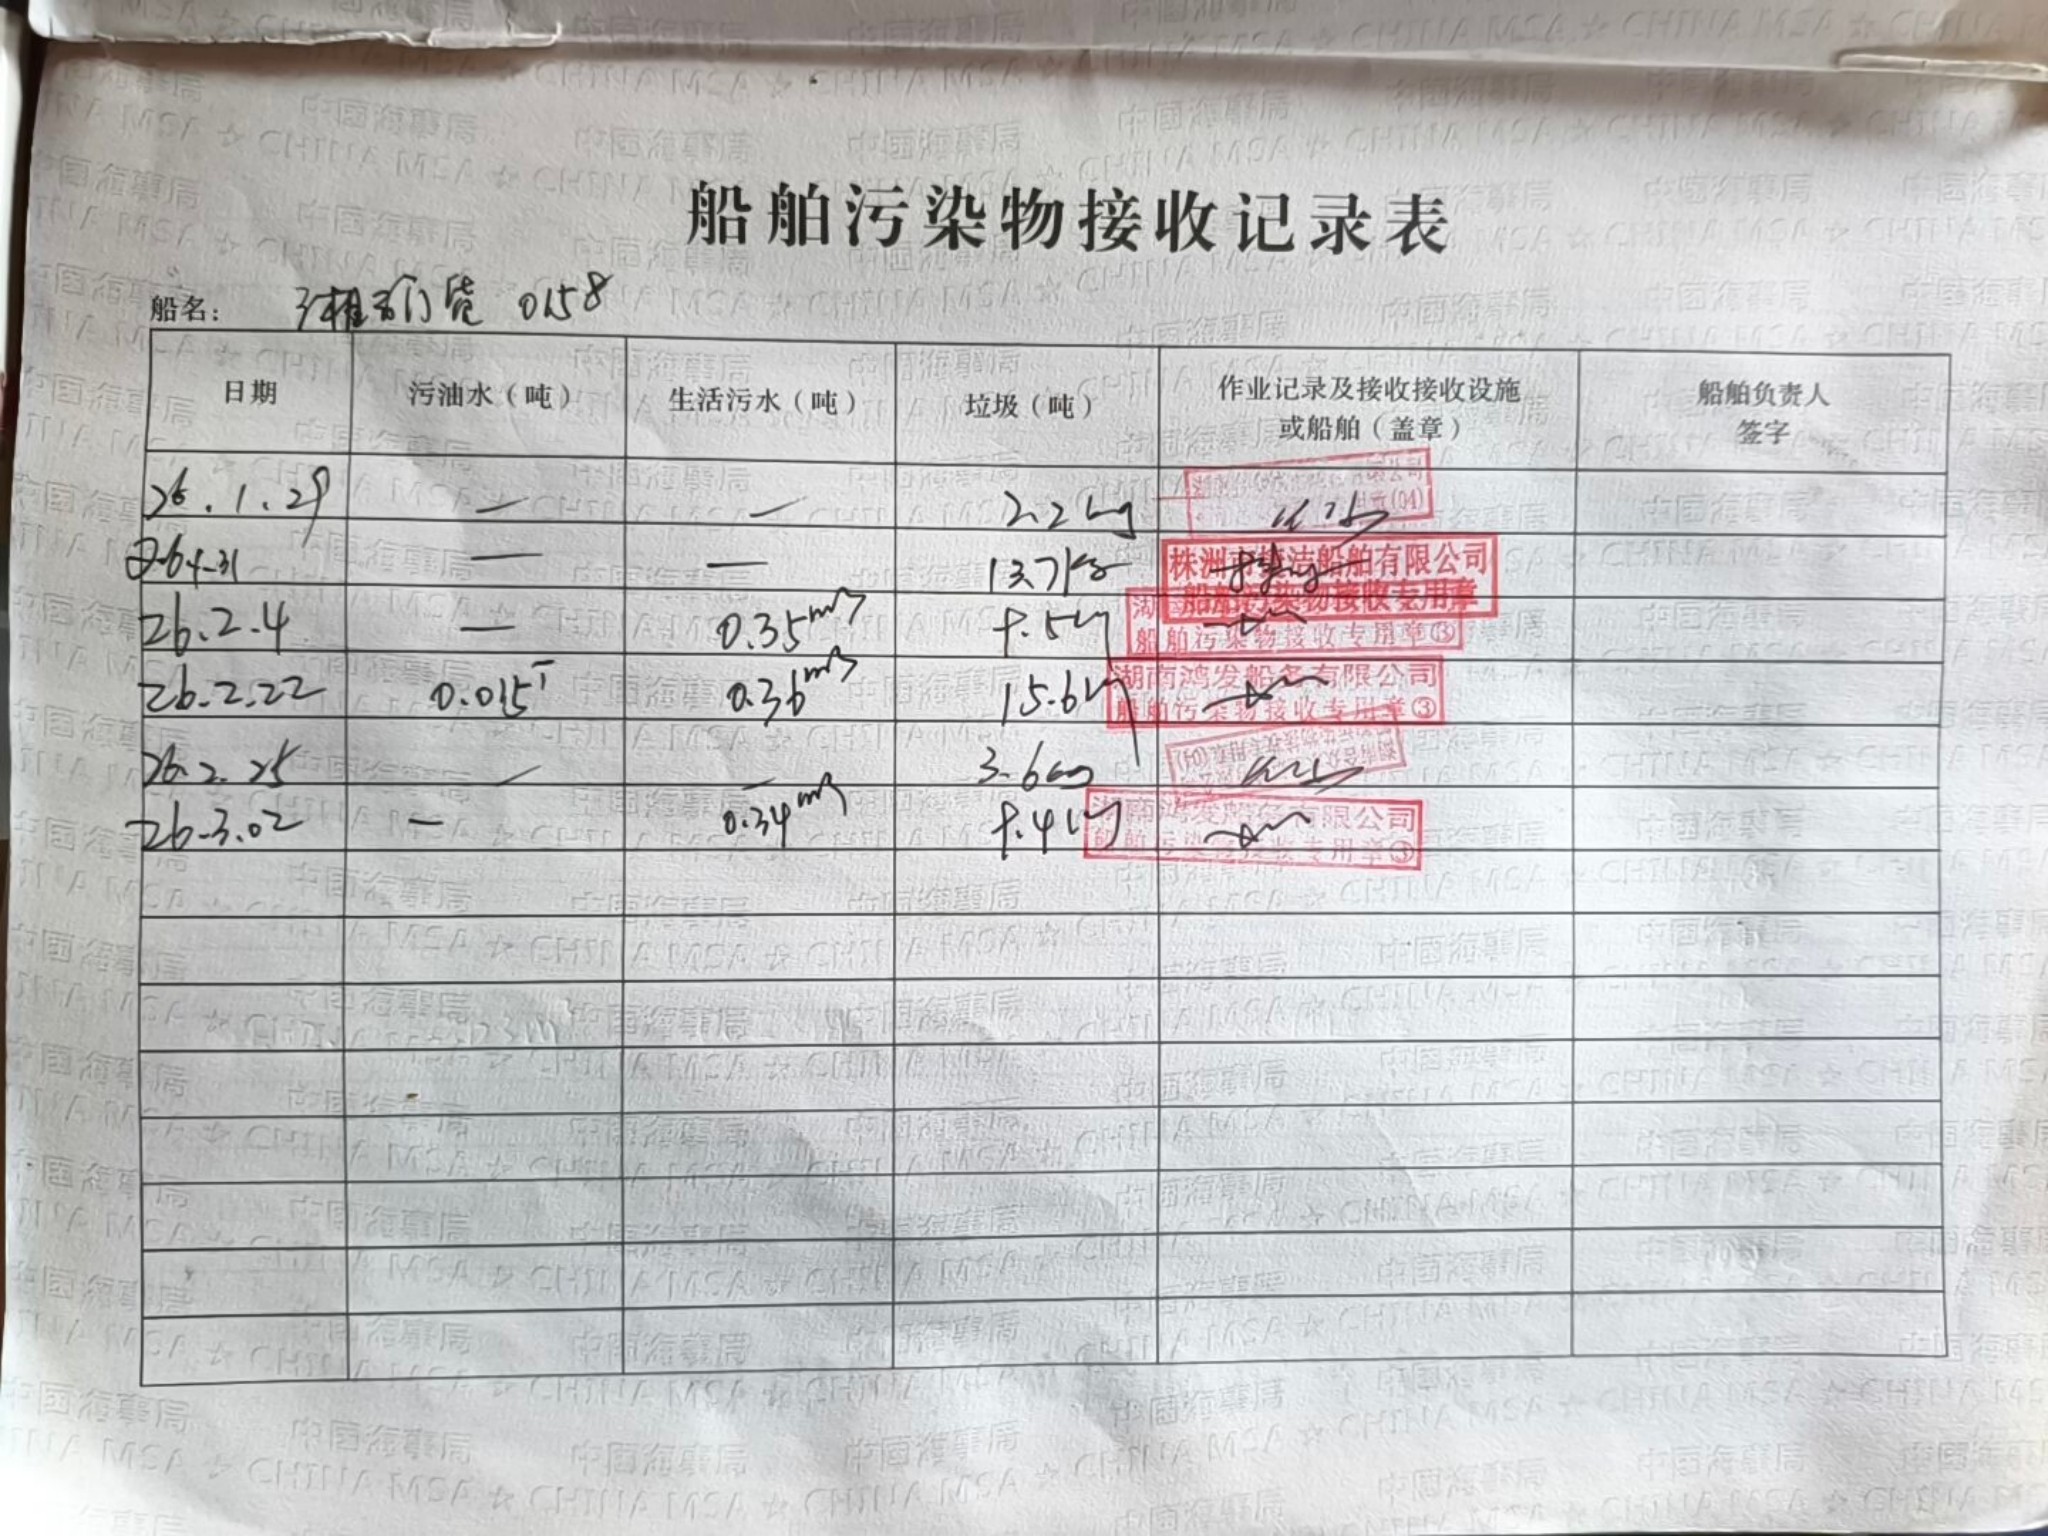 船舶污染物接收记录表
船名： 湘石门货 0158
日期 污油水（吨） 生活污水（吨） 垃圾（吨） 作业记录及接收接收设施或船舶（盖章） 船舶负责人签字
26.1.29 — — 2.2kg
— — 13.7kg 株洲市捷洁船舶有限公司 船舶污染物接收专用章
26.2.4 — 0.35m³ 船舶污染物接收专用章③
26.2.22 0.015T 0.36m³ 15.6kg 湖南鸿发船务有限公司 船舶污染物接收专用章③
26.2.25 — — 3.6kg
26.3.02 — 0.34m³ 湖南鸿发船务有限公司 船舶污染物接收专用章③
中国海事局
CHINA MSA